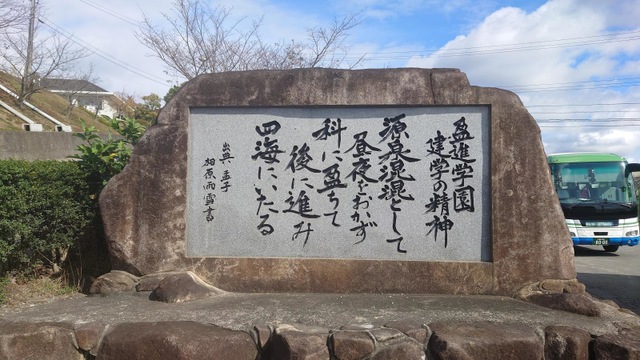 盈進学園
建学の精神
源泉混混として
昼夜をおかず
科に盈ちて
後に進み
四海に、いたる
出典 孟子
相原雨雪書